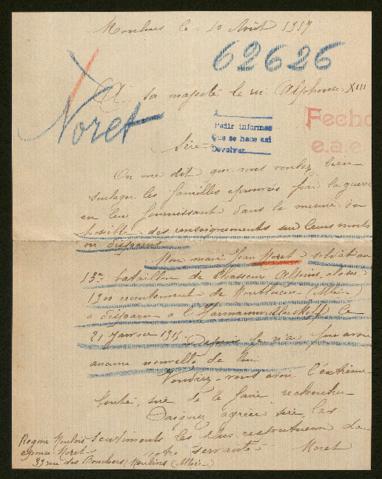 Moulins le 10 Août 1917
62626
Noret
A sa majesté le roi Alphonse XIII
A
Pedir informes
Que se hace asi
Devolver
Fecho
e.a e.
Sire
On me dit que vous voulez bien
soulager les familles éprouvées par la guerre
en leur fournissant dans la mesure du
possible des renseignements sur leurs morts
ou disparus
Mon mari Jean Noret soldat au
13e bataillon de Chasseur Alpins
recrutement de Montluçon (Allier)
a disparu à l'Hartmannwillerkopf le
21 Janvier 1915 depuis je n'ai pu avoir
aucune nouvelle de lui
Voudriez-vous avoir l'extrême
bonté, sire de le faire rechercher
Daignez agréer sire, les
sentiments les plus respectueux de
votre servante Noret
Regina Moulois
épouse Noret
33 rue des Bouchers Moulins (Allier)